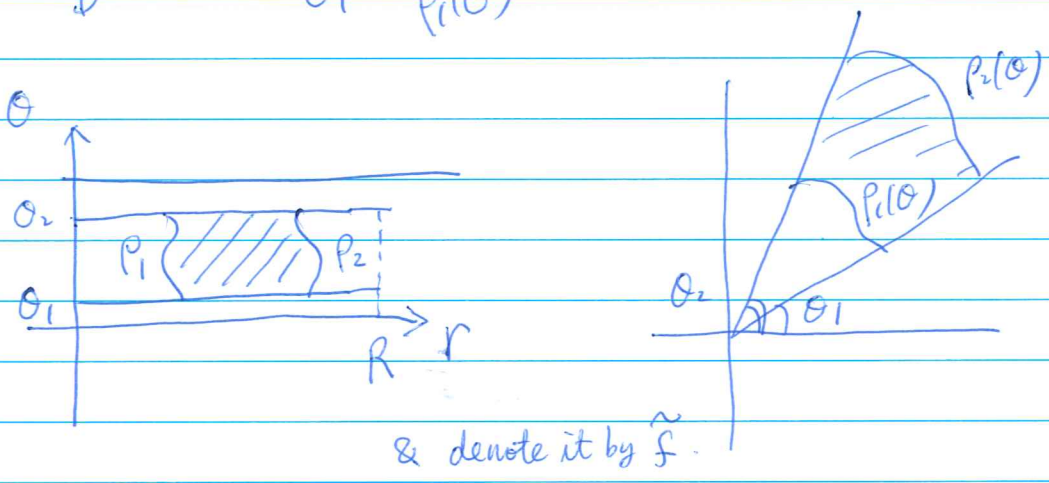 θ₁ ρ₁(θ)
θ
θ₂
ρ₁
ρ₂
θ₁
R
r
ρ₂(θ)
ρ₁(θ)
θ₂
θ₁
& denote it by f̃.